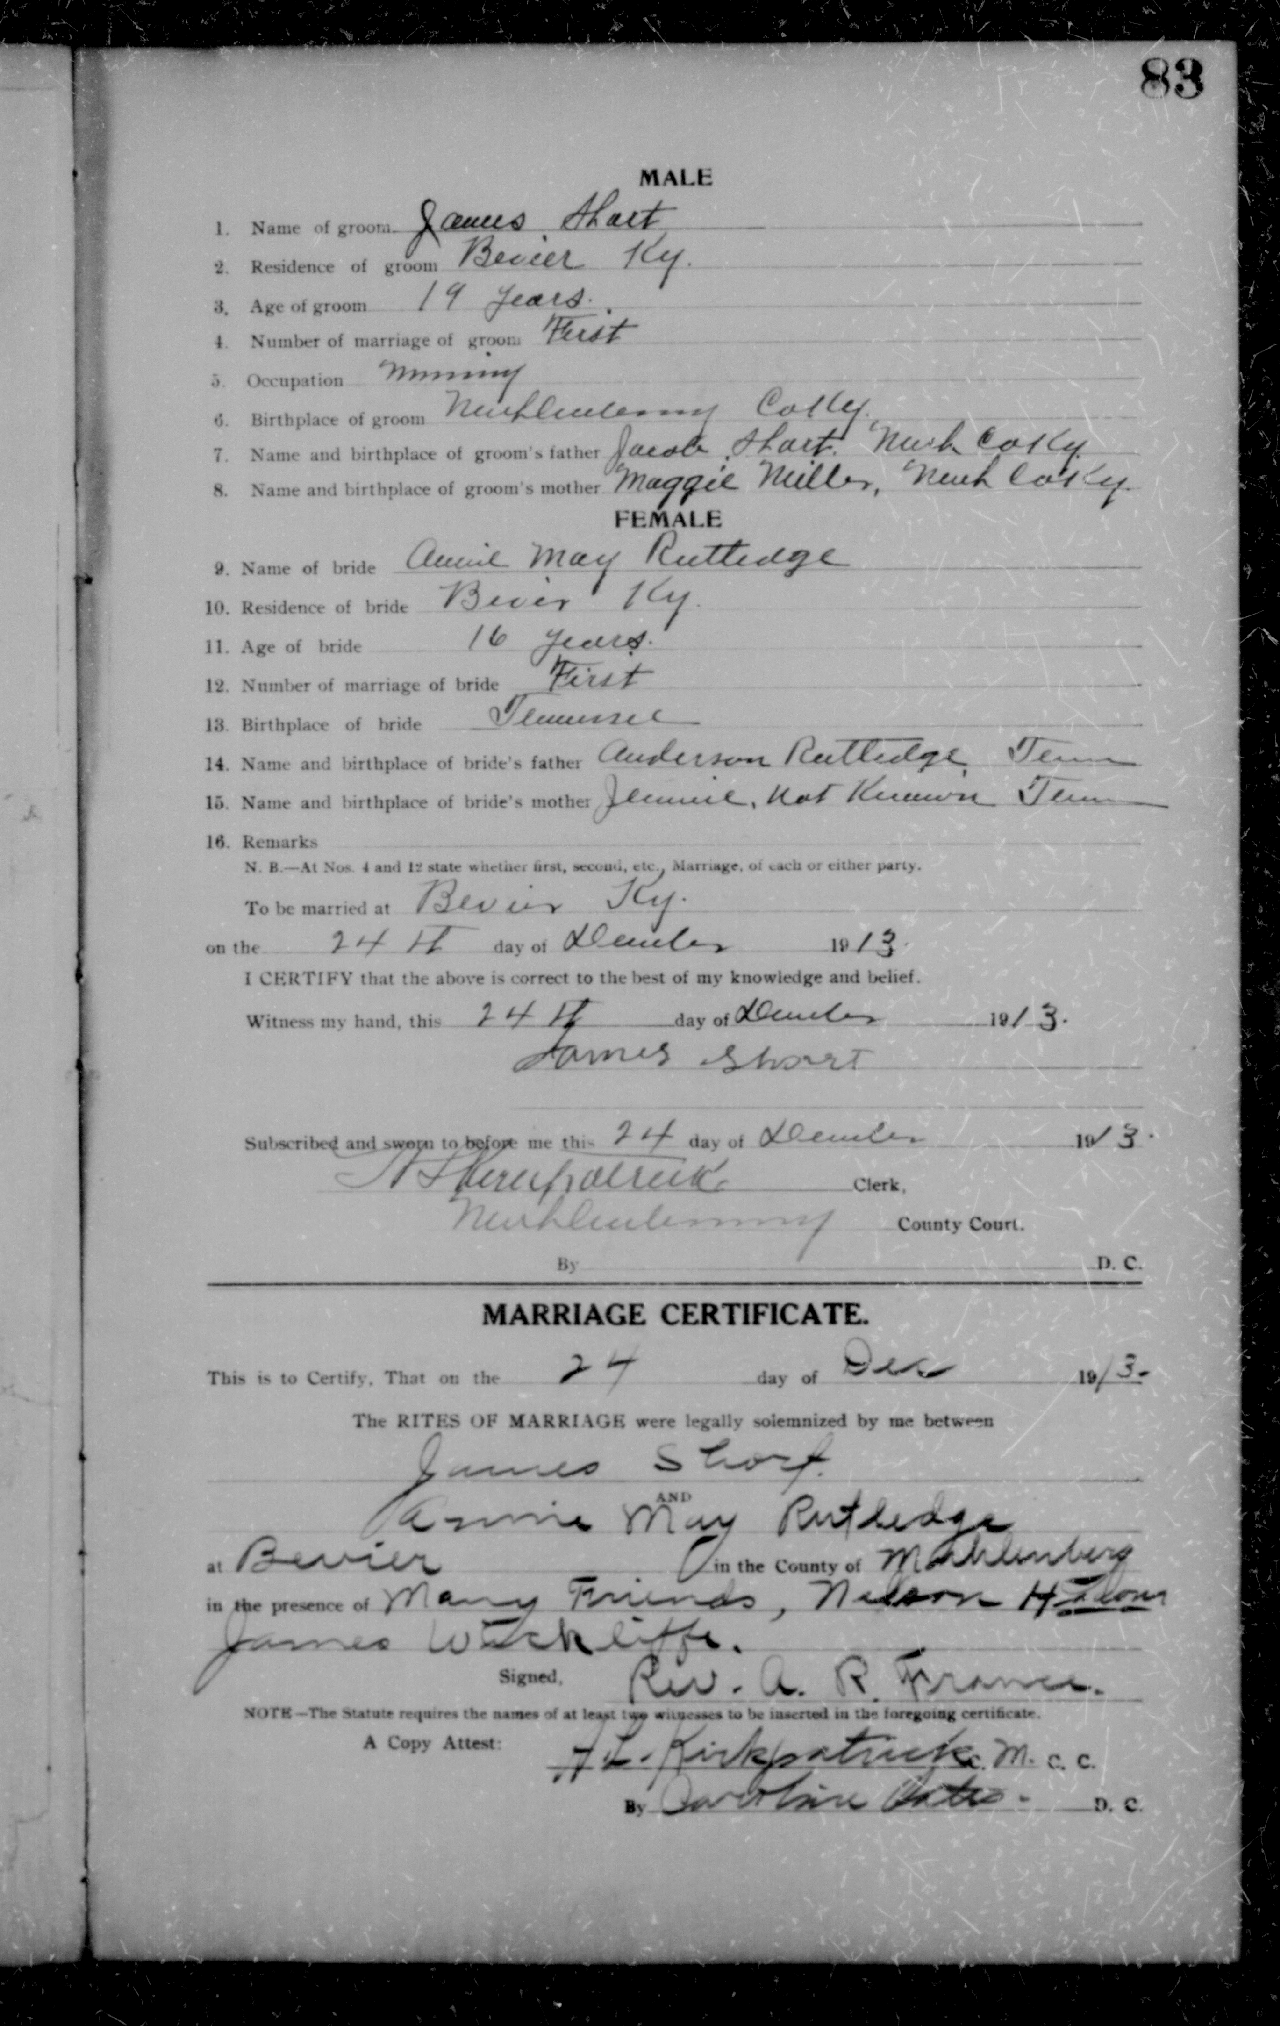 83
MALE
1. Name of groom James Short
2. Residence of groom Bevier Ky.
3. Age of groom 19 years.
4. Number of marriage of groom First
5. Occupation Mining
6. Birthplace of groom Muhlenberg Co Ky.
7. Name and birthplace of groom's father Jacob Short. Muh Co Ky
8. Name and birthplace of groom's mother Maggie Miller, Muh Co Ky.
FEMALE
9. Name of bride Annie May Rutledge
10. Residence of bride Bevier Ky.
11. Age of bride 16 years.
12. Number of marriage of bride First
13. Birthplace of bride Tennessee
14. Name and birthplace of bride's father Anderson Rutledge, Tenn
15. Name and birthplace of bride's mother Jennie, Not Known Tenn
16. Remarks
N. B.—At Nos. 4 and 12 state whether first, second, etc., Marriage, of each or either party.
To be married at Bevier Ky.
on the 24th day of December 1913.
I CERTIFY that the above is correct to the best of my knowledge and belief.
Witness my hand, this 24th day of December 1913.
James Short
Subscribed and sworn to before me this 24 day of December 1913.
Kirkpatrick Clerk,
Muhlenberg County Court.
By D. C.
MARRIAGE CERTIFICATE.
This is to Certify, That on the 24 day of Dec 1913.
The RITES OF MARRIAGE were legally solemnized by me between
James Short
AND
Annie May Rutledge
at Bevier in the County of Muhlenberg
in the presence of Many Friends, Nelson H
James Wickliffe.
Signed, Rev. A. R. France.
NOTE—The Statute requires the names of at least two witnesses to be inserted in the foregoing certificate.
A Copy Attest: Kirkpatrick C. M. C. C.
By Caroline D. C.